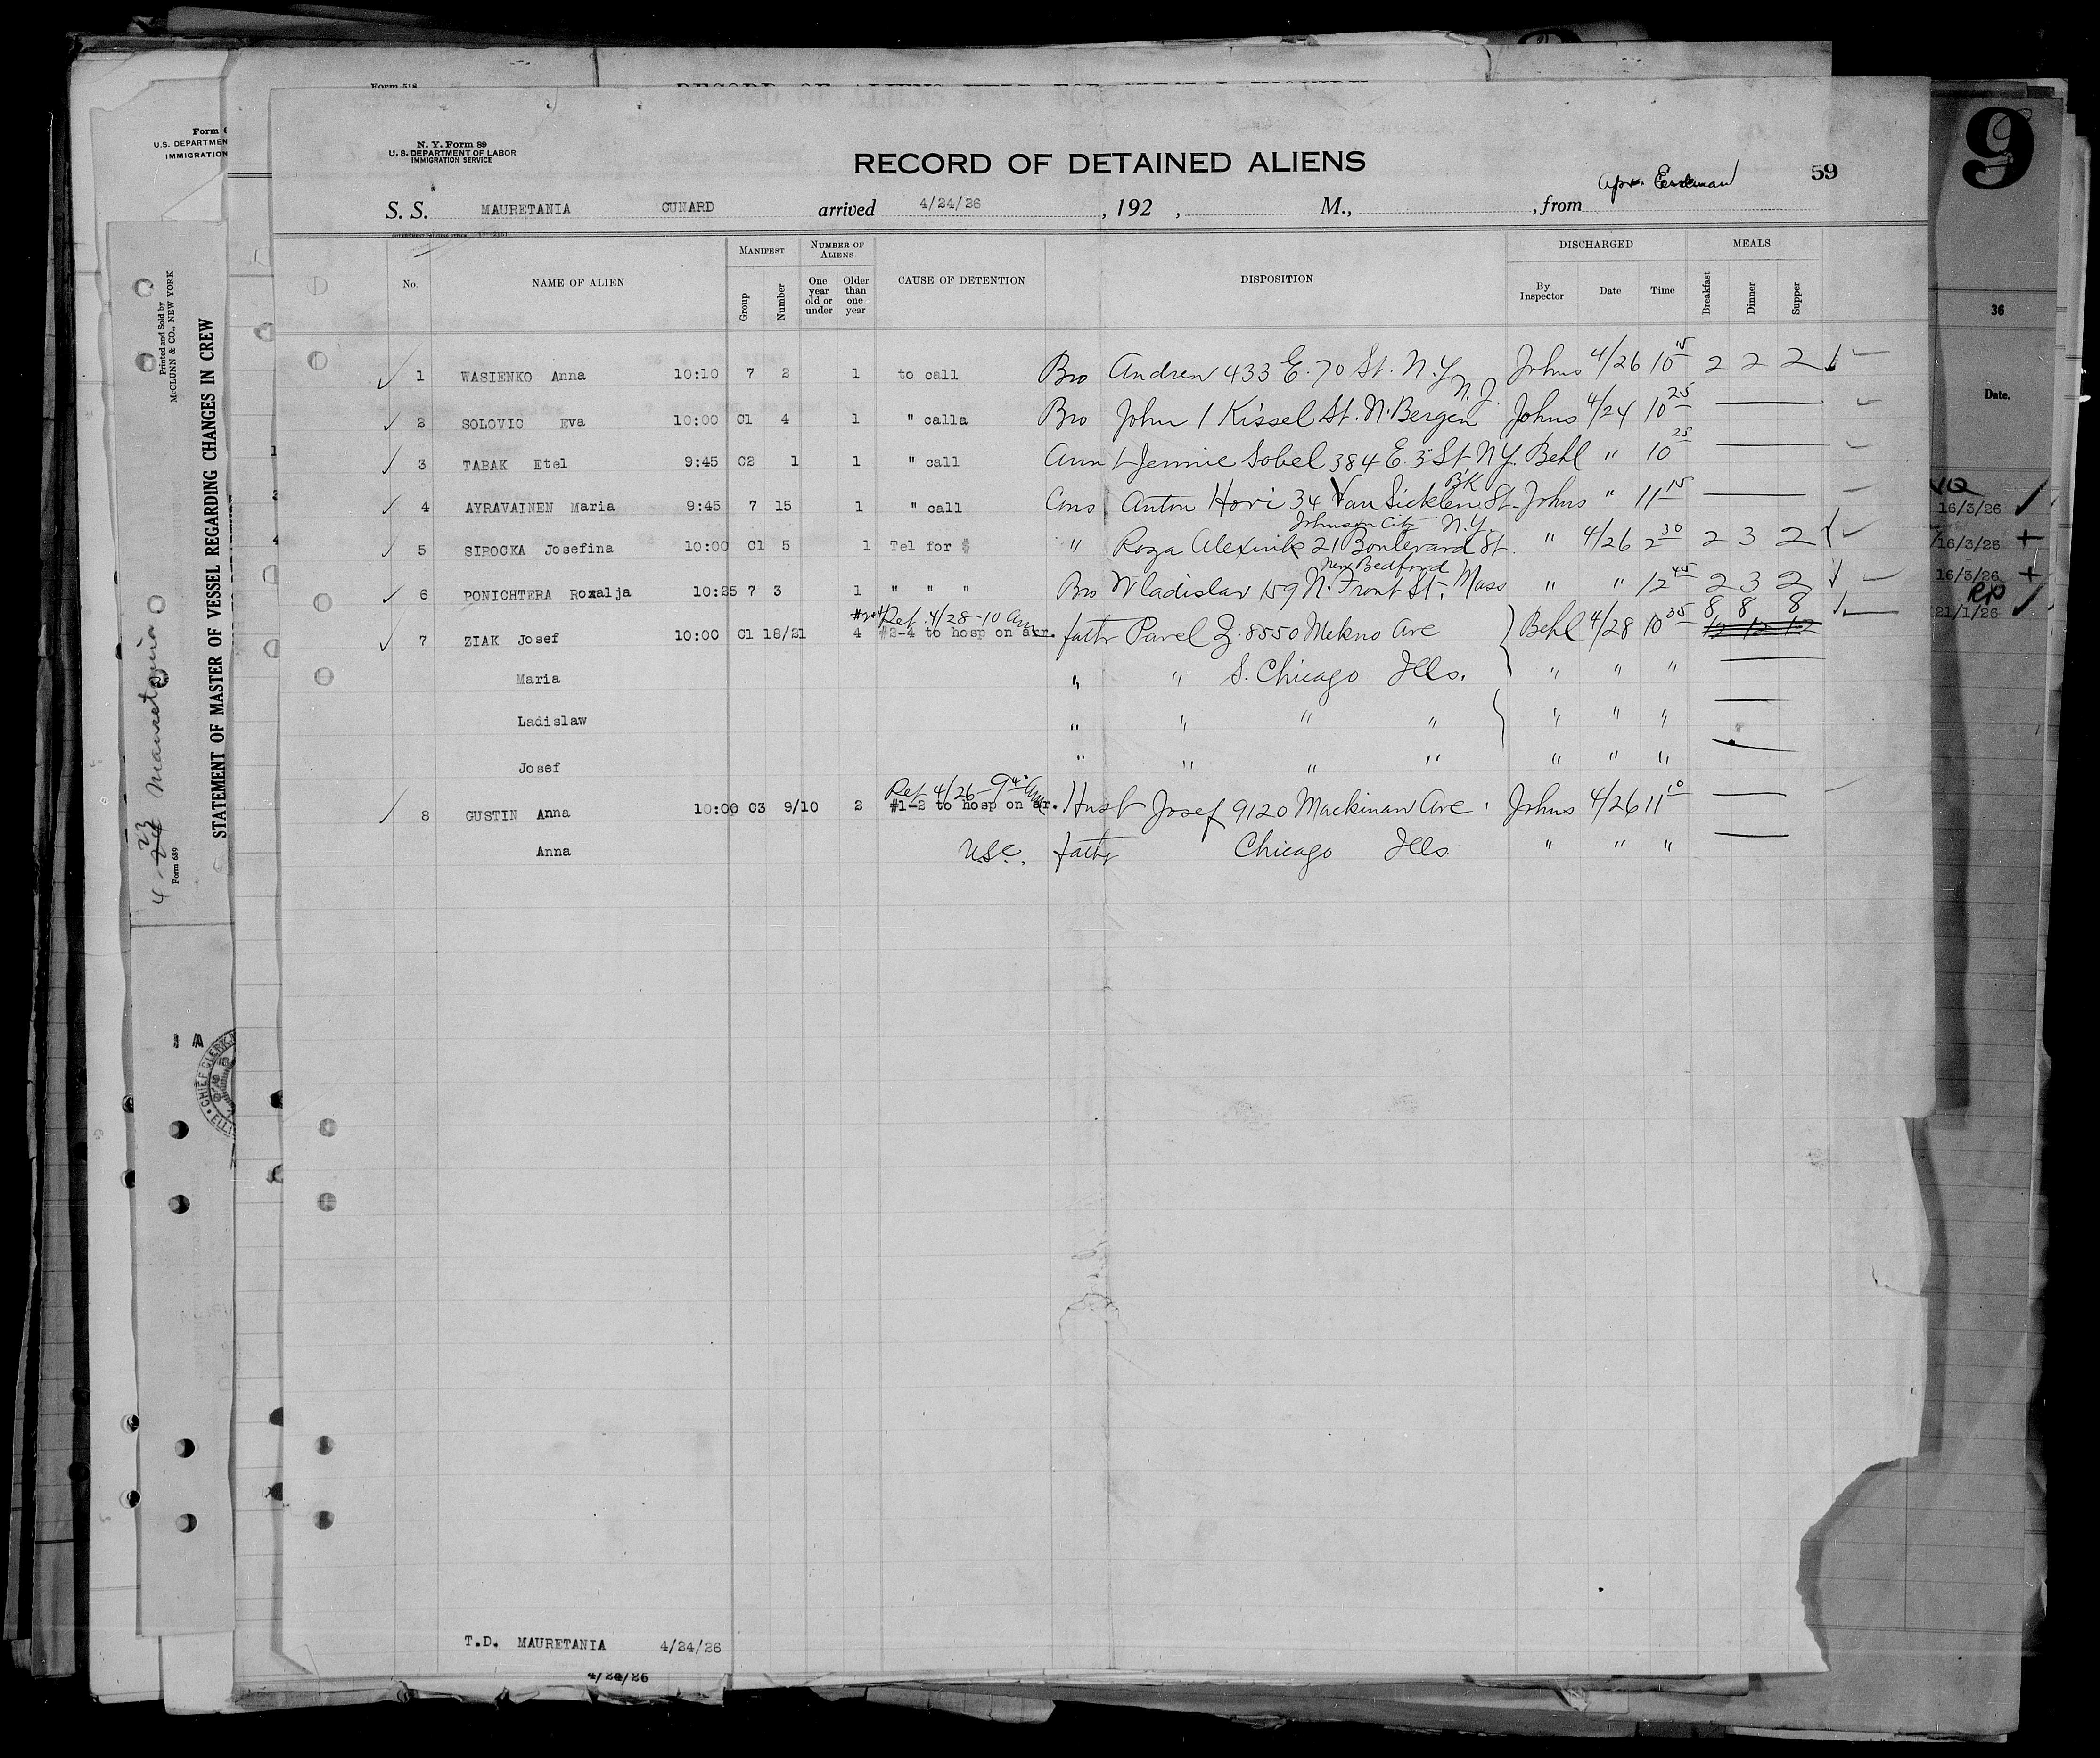 Form 518
Form 6
U.S. DEPARTMEN
IMMIGRATION
N. Y. Form 89
U. S. DEPARTMENT OF LABOR
IMMIGRATION SERVICE
RECORD OF DETAINED ALIENS
59
9
S. S. MAURETANIA CUNARD arrived 4/24/26 , 192 , M., , from
No. NAME OF ALIEN MANIFEST Group Number NUMBER OF ALIENS One year old or under Older than one year CAUSE OF DETENTION DISPOSITION DISCHARGED By Inspector Date Time MEALS Breakfast Dinner Supper
1 WASIENKO Anna 10:10 7 2 1 to call Bro Andrew 433 E. 70 St. N.Y Johns 4/26 10 15 2 2 2
N.J.
2 SOLOVIC Eva 10:00 C1 4 1 " calla Bro John 1 Kissel St. N. Bergen Johns 4/24 10 25
3 TABAK Etel 9:45 C2 1 1 " call Aunt Jennie Sobel 384 E. 3 St NY. Behl " 10 25
BK
4 AYRAVAINEN Maria 9:45 7 15 1 " call Cons Anton Hovi 34 Van Sicklen St. Johns " 11 15
Johnson City N.Y.
5 SIROCKA Josefina 10:00 C1 5 1 Tel for $ " Roza Alexink 21 Boulevard St. " 4/26 2 30 2 3 2
New Bedford
6 PONICHTERA Rozalja 10:25 7 3 1 " " " Bro Wladislav 159 N. Front St. Mass " " 12 45 2 3 2
Ret. 4/28-10 Am 8 8 8
7 ZIAK Josef 10:00 C1 18/21 4 #2-4 to hosp on arr. fathr Pavel Z. 8550 Mekno Ave Behl 4/28 10 35 12 12 12
Maria " " S. Chicago Ills. " " "
Ladislaw " " " " " " "
Josef " " " " " " "
Ret 4/26-9 Am
8 GUSTIN Anna 10:00 C3 9/10 2 #1-2 to hosp on ar. Husb Josef 9120 Mackinaw Ave Johns 4/26 11 10
Anna U.S.C. fathr Chicago Ills " " "
T.D. MAURETANIA 4/24/26
4/24/26
Printed and Sold by
McCLUNN & CO., NEW YORK
STATEMENT OF MASTER OF VESSEL REGARDING CHANGES IN CREW
Mauretania
Form 689
CHIEF CLERK
36
Date.
16/3/26
16/3/26
16/3/26
RP
21/1/26